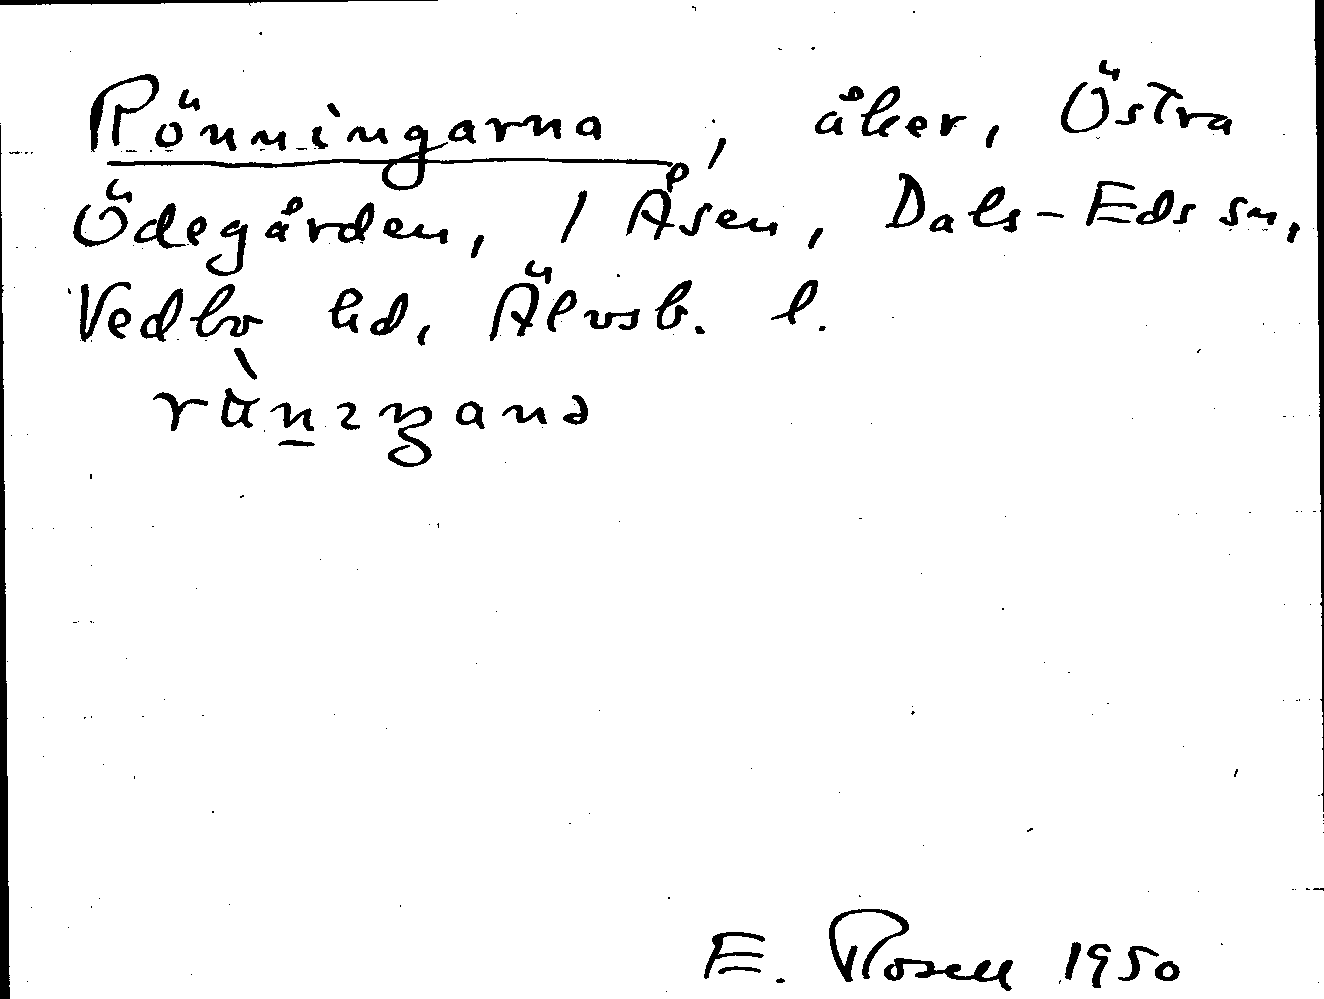 Rönningarna, åker, Östra
Ödegården, 1 Åsen, Dals-Eds sn,
Vedbo hd, Älvsb. l.
E. Rosell 1950